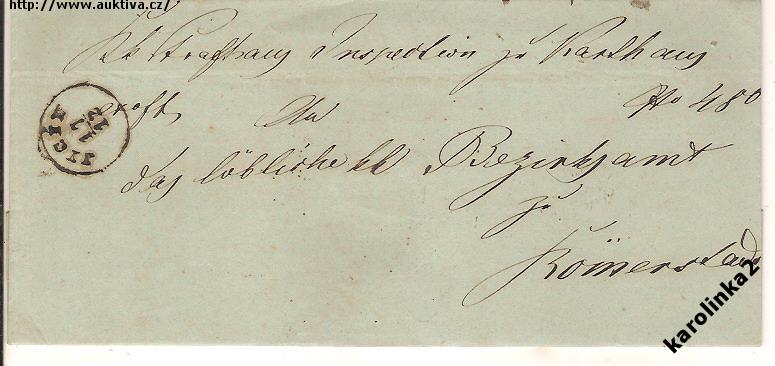 http://www.auktiva.cz/
KK Strafhaus Inspection zu Karthaus
exoff. An No 480
das löbliche kk Bezirksamt
zu
Römerstadt
GITSCHIN
17
12
karolinka2